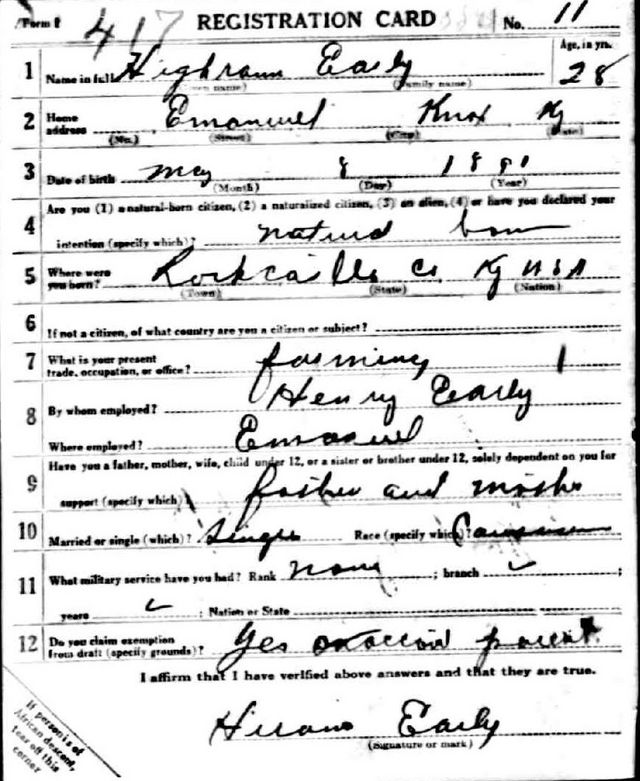 Form 1 417 REGISTRATION CARD No. 11
1 Name in full Highram Early Age, in yrs. 28
(Family name)
2 Home address Emanuel Knox Ky
(No.) (Street) (City) (State)
3 Date of birth May 8 1891
(Month) (Day) (Year)
Are you (1) a natural-born citizen, (2) a naturalized citizen, (3) an alien, (4) or have you declared your
4 intention (specify which)? natural born
5 Where were you born? Rockcastle Co Ky USA
(Town) (State) (Nation)
6 If not a citizen, of what country are you a citizen or subject?
7 What is your present trade, occupation, or office? farming 1
8 By whom employed? Henry Early
Where employed? Emanuel
Have you a father, mother, wife, child under 12, or a sister or brother under 12, solely dependent on you for
9 support (specify which)? father and mother
10 Married or single (which)? Single Race (specify which)? Caucasian
11 What military service have you had? Rank none ; branch ;
years ; Nation or State
12 Do you claim exemption from draft (specify grounds)? Yes parent
I affirm that I have verified above answers and that they are true.
Hiram Early
(Signature or mark)
If person is of
African descent,
tear off this
corner